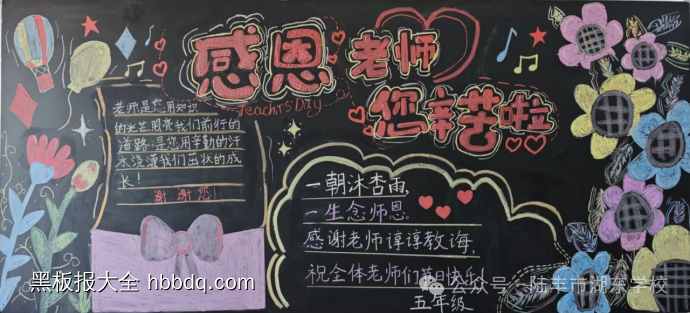 感恩老师
Teachrs'Day
您辛苦啦
老师是您用知识
的光芒照亮我们前行的
道路;是您用辛勤的汗
水浇灌我们茁壮的成
长!
谢谢您!
一朝沐杏雨,
一生念师恩。
感谢老师谆谆教诲,
祝全体老师们节日快乐!
五年级
黑板报大全 hbbdq.com
公众号 · 陆丰市湖东学校